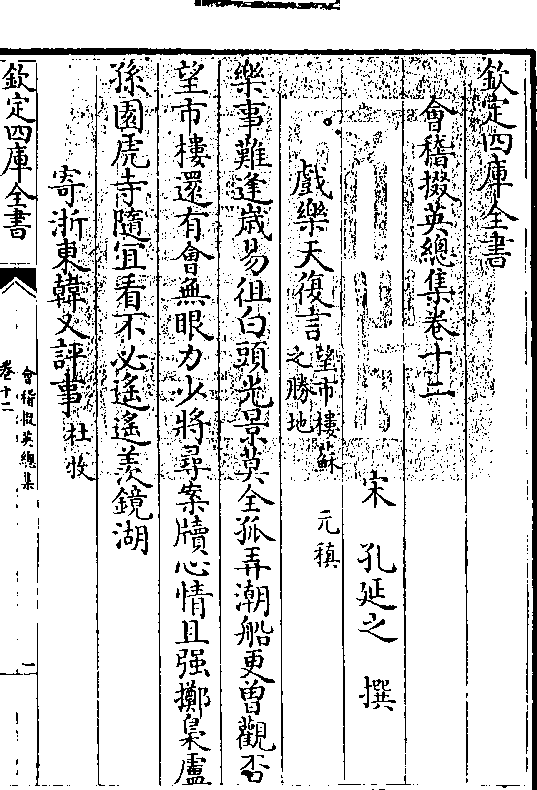 欽定四庫全書
會稽掇英總集卷十二
宋 孔延之 撰
戲樂天復言望市樓蘇之勝地 元稹
樂事難逢歲易徂白頭光景莫全孤弄潮船更曾觀否
望市樓還有會無眼力少將尋案牘心情且强擲梟盧
孫園虎寺隨宜看不必遙遙羨鏡湖
寄浙東韓乂評事杜牧
欽定四庫全書
會稽掇英總集
卷十二
一